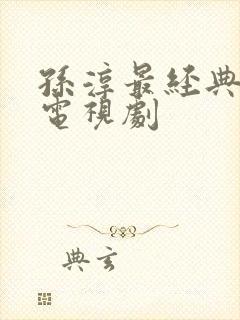 孫淳最經典
電視劇
典玄